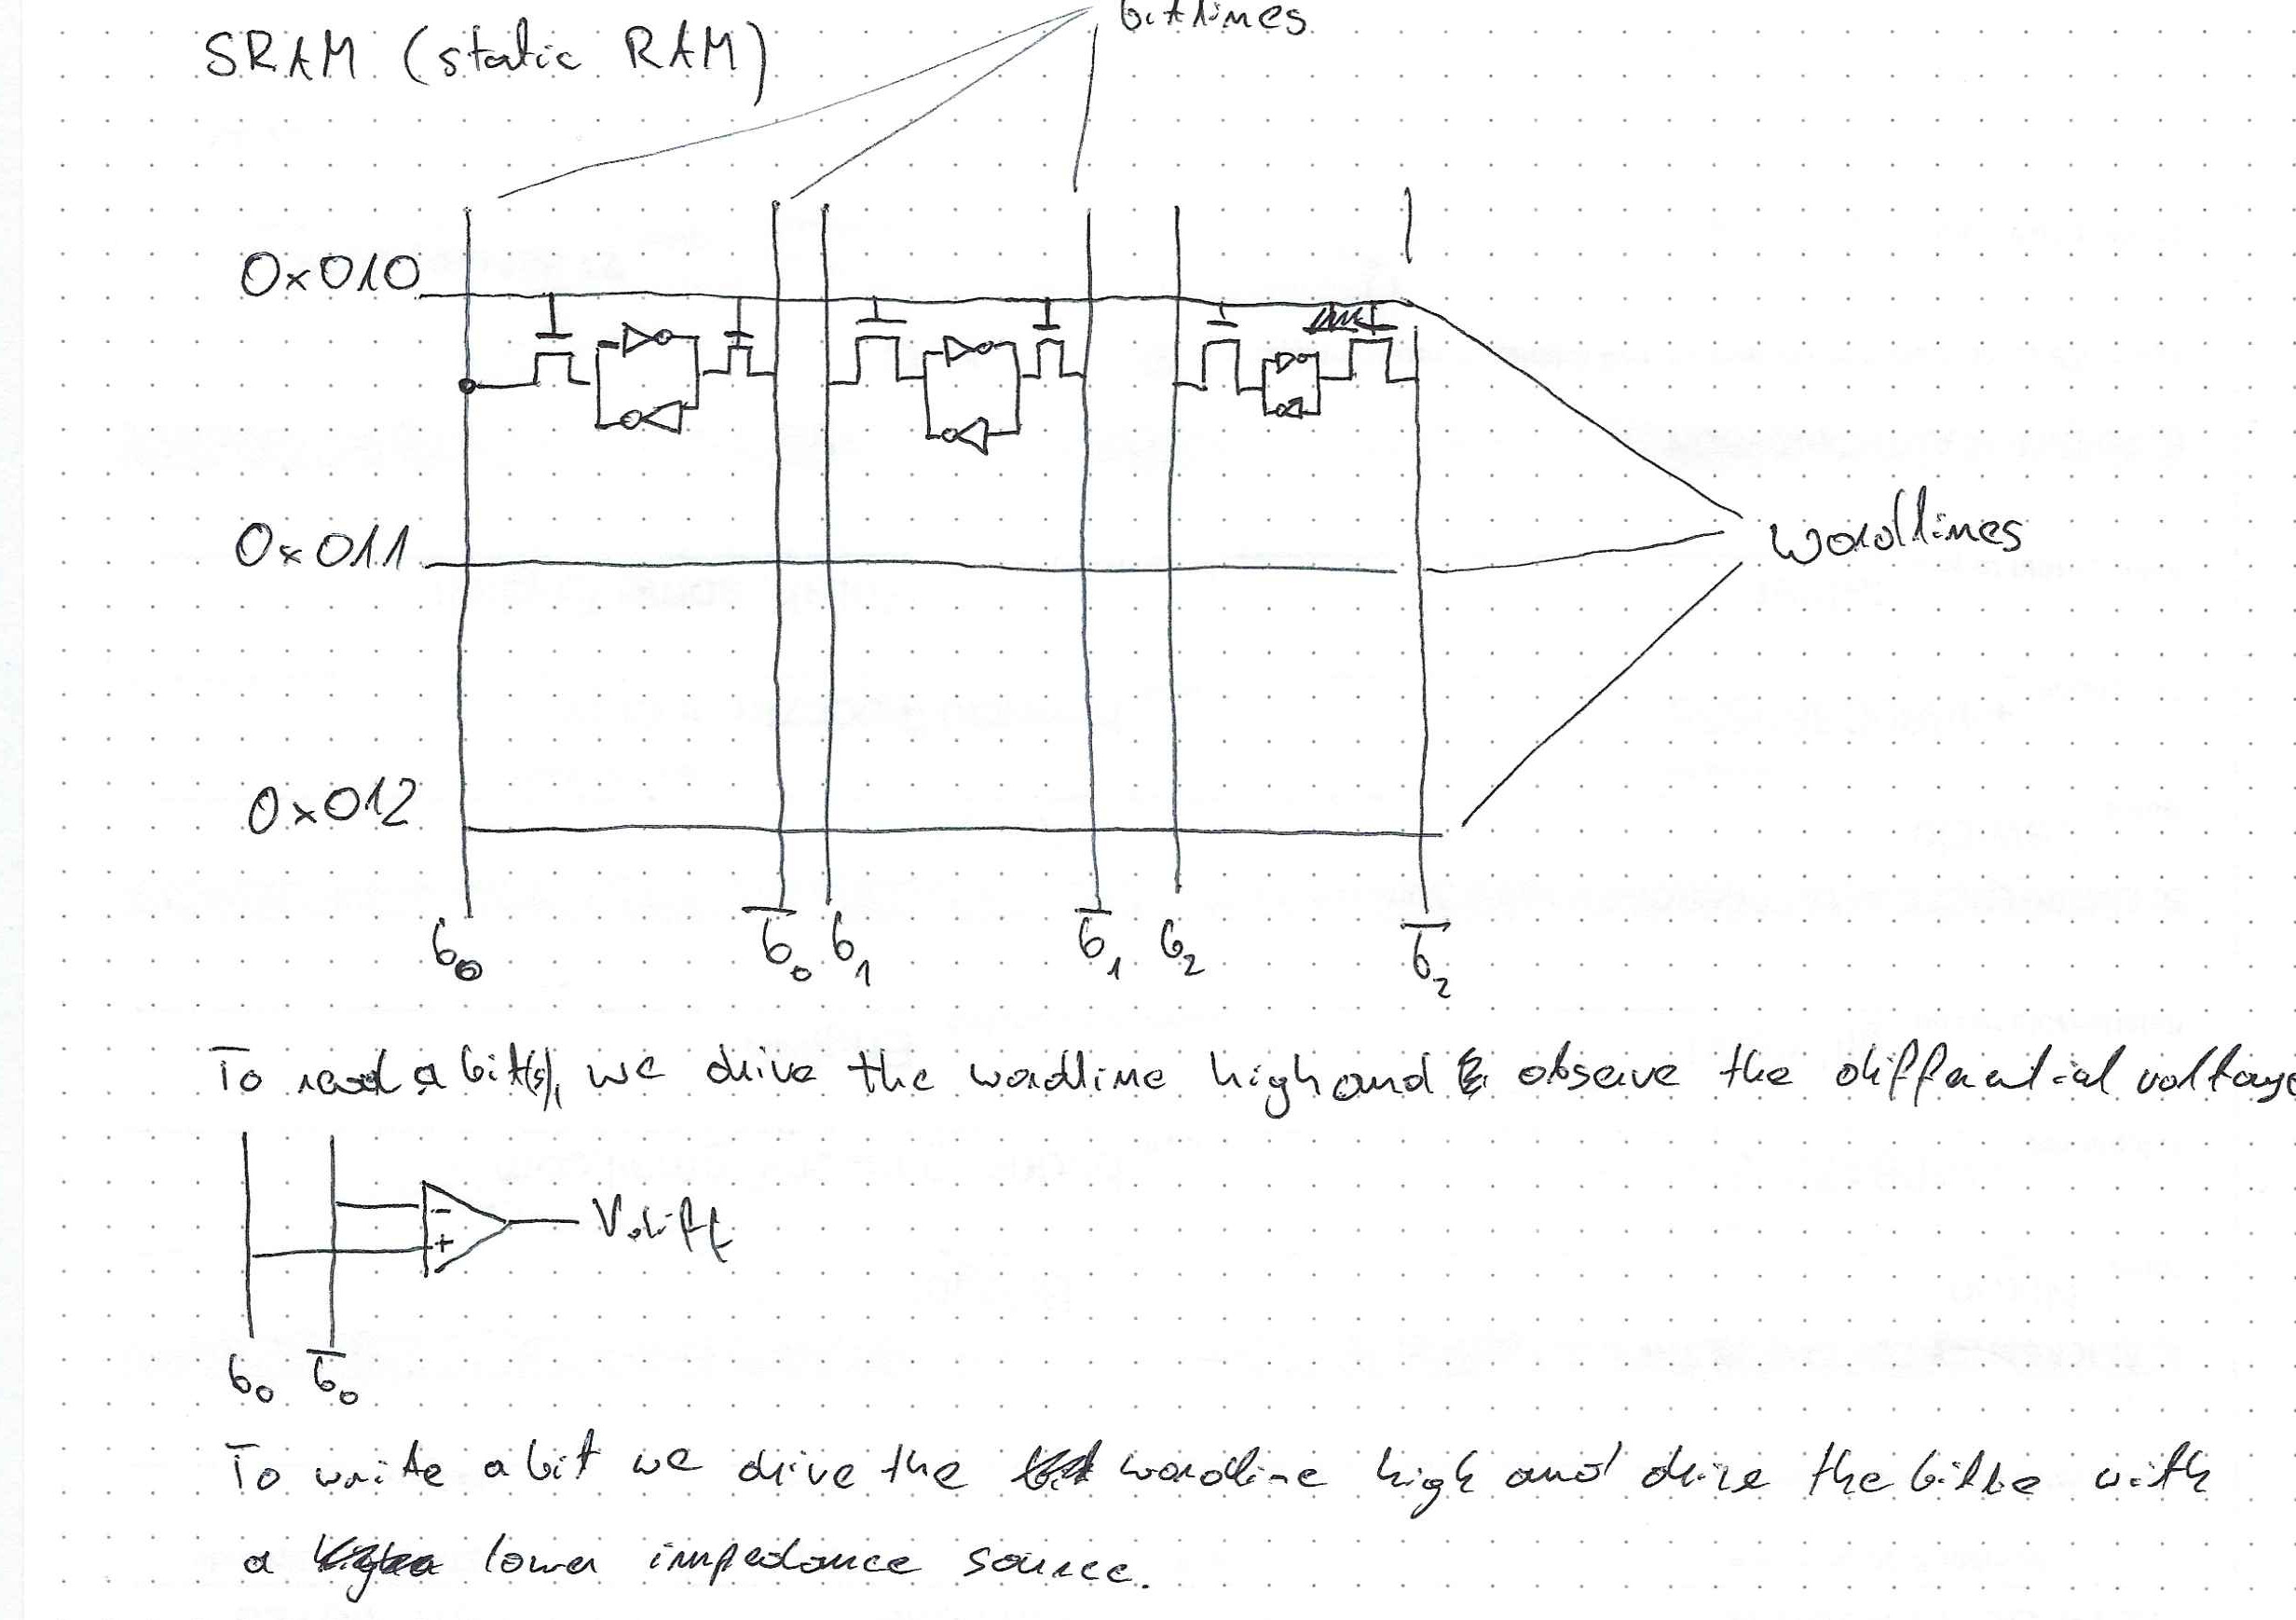 bitlines
SRAM (static RAM)
0x010
0x011
wordlines
0x012
b₀ b̅₀ b₁ b̅₁ b₂ b̅₂
To read a bit(s), we drive the wordline high and observe the differential voltage
-
+
Vdiff
b₀ b̅₀
To write a bit we drive the wordline high and drive the bitline with
a lower impedance source.